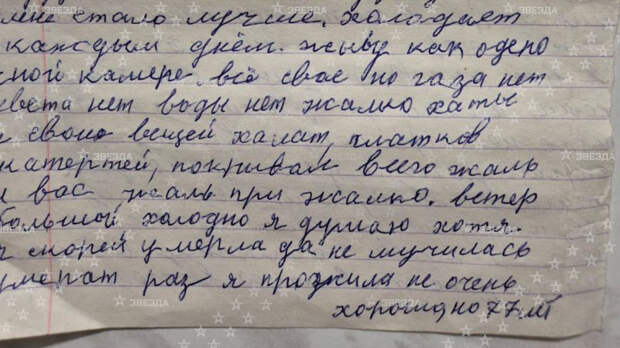 мне стало лучше. холодает
каждым днём. жыву как одено
сной камере. всё свое но газа нет
света нет воды нет жалко хаты
и своих вещей халат, платков
катертей, покривал всего жаль
и вас жаль при жалко. ветер
большой холодно я думаю хотя.
морей умерла да не мучилась
умерат раз я прожила не очень
хорошо но 77 лет